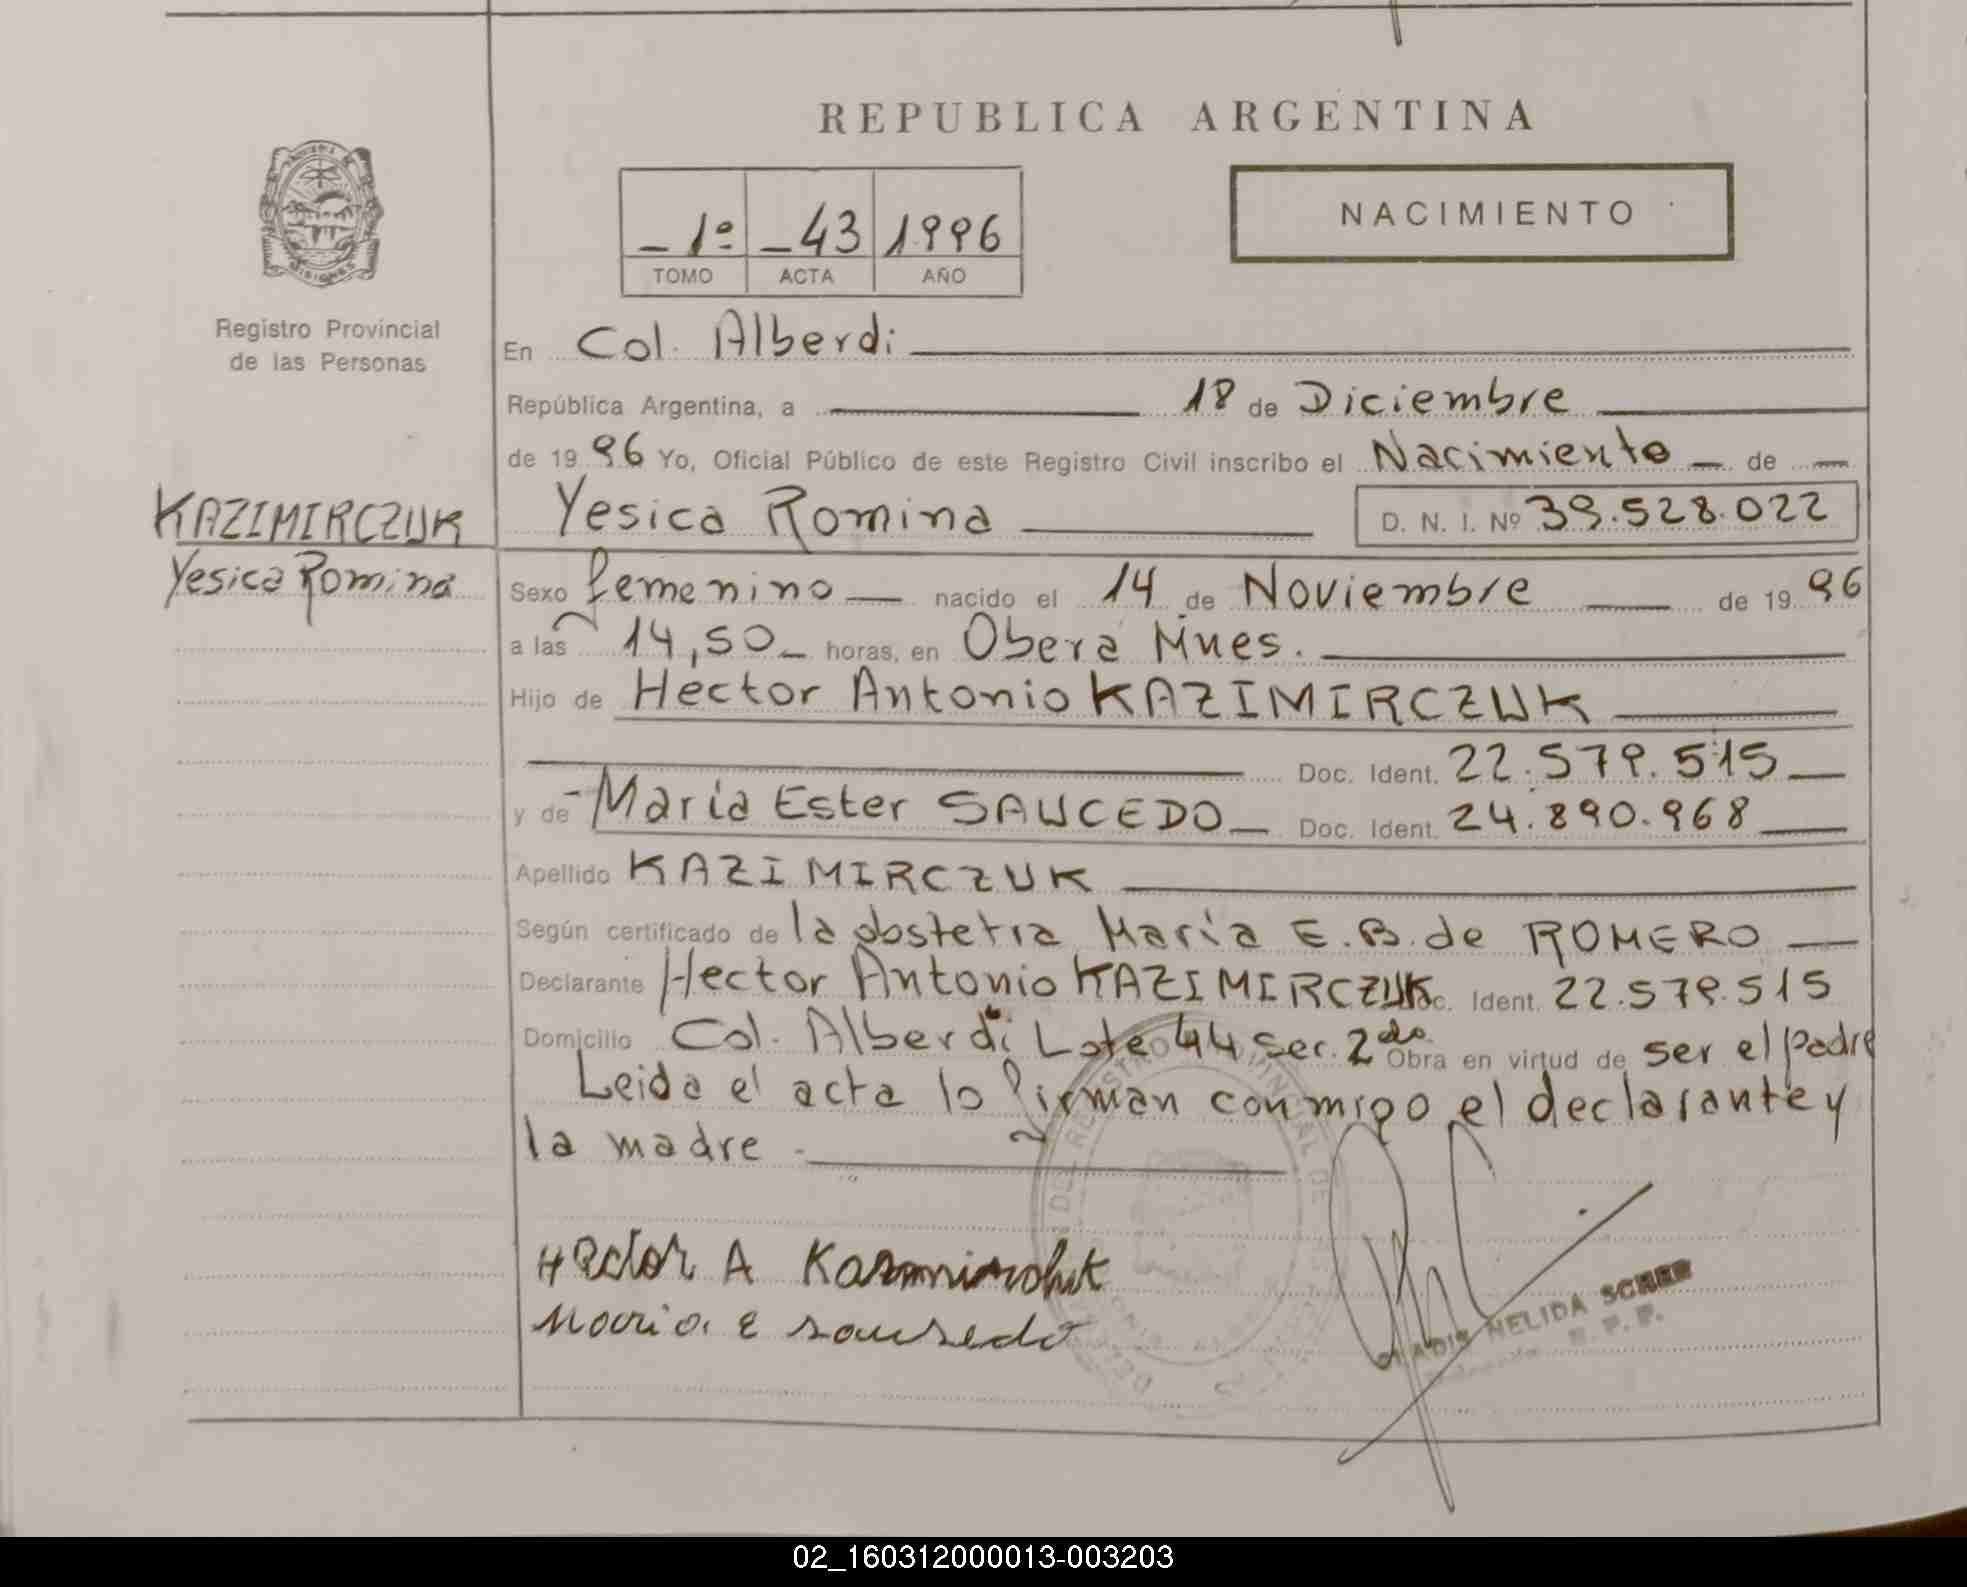 REPUBLICA ARGENTINA
NACIMIENTO
_ 1º _ 43 1996
TOMO ACTA AÑO
Registro Provincial
de las Personas
En Col. Alberdi
República Argentina, a 18 de Diciembre
de 19 96 Yo, Oficial Público de este Registro Civil inscribo el Nacimiento _ de _
KAZIMIRCZUK
Yesica Romina
Yesica Romina D. N. I. Nº 39.528.022
Sexo femenino nacido el 14 de Noviembre de 19 96
a las 14,50_ horas, en Obera Mnes.
Hijo de Hector Antonio KAZIMIRCZUK
Doc. Ident. 22.579.515
y de Maria Ester SAUCEDO Doc. Ident. 24.890.968
Apellido KAZIMIRCZUK
Según certificado de la obstetra María E.B. de ROMERO
Declarante Hector Antonio KAZIMIRCZUK Doc. Ident. 22.579.515
Domicilio Col. Alberdi Lote 44 Sec. 2da Obra en virtud de ser el padre
Leida el acta lo firman conmigo el declarante y
la madre.
Hector A
Maria E Sausedo
NELIDA
02_160312000013-003203